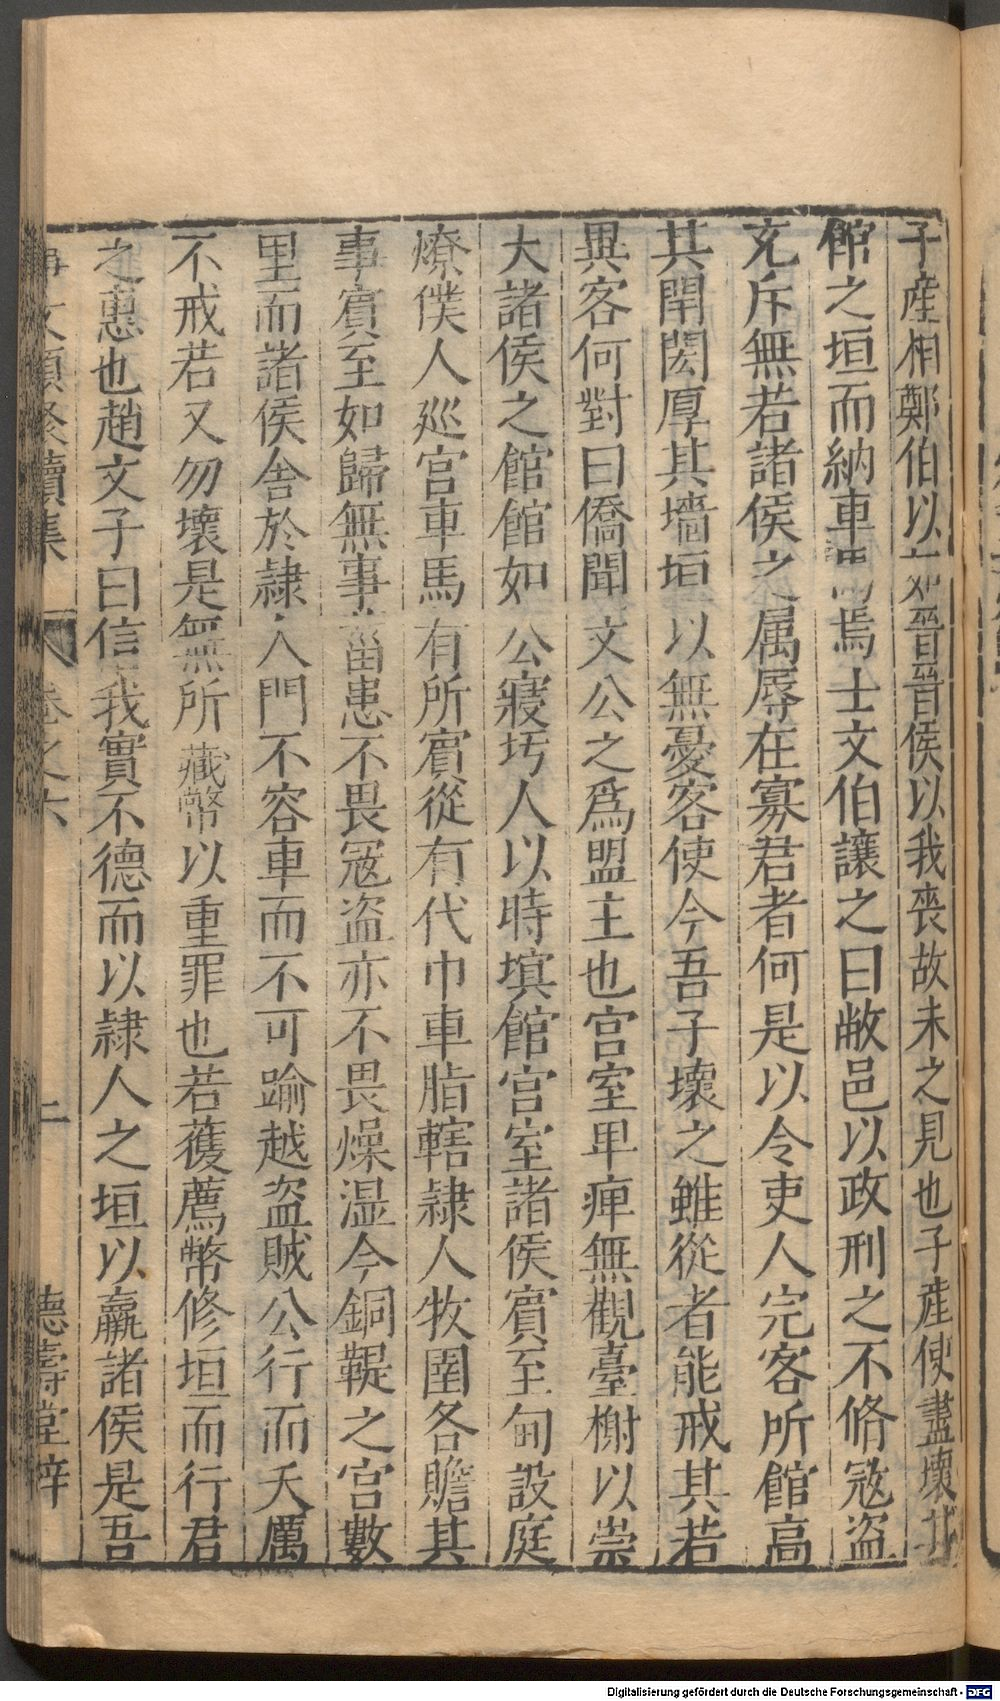 子產相鄭伯以如晉晉侯以我喪故未之見也子產使盡壞其
館之垣而納車馬焉士文伯讓之曰敝邑以政刑之不脩寇盗
充斥無若諸侯之属辱在寡君者何是以令吏人完客所館高
其閈閎厚其墻垣以無憂客使今吾子壞之雖從者能戒其若
異客何對曰僑聞文公之爲盟主也宫室卑庳無觀臺榭以崇
大諸侯之館館如公寢圬人以時塡館宫室諸侯賓至甸設庭
燎僕人廵宫車馬有所賓從有代巾車脂轄隷人牧圉各贍其
事賓至如歸無事菑患不畏冦盗亦不畏燥湿今銅鞮之宫數
里而諸侯舍於隷人門不容車而不可踰越盗賊公行而夭厲
不戒若又勿壞是無所藏幣以重罪也若蒦薦幣修垣而行君
之惠也趙文子曰信我實不德而以隷人之垣以贏諸侯是吾
事文類聚續集 卷之六 德壽堂梓
Digitalisierung gefördert durch die Deutsche Forschungsgemeinschaft - DFG